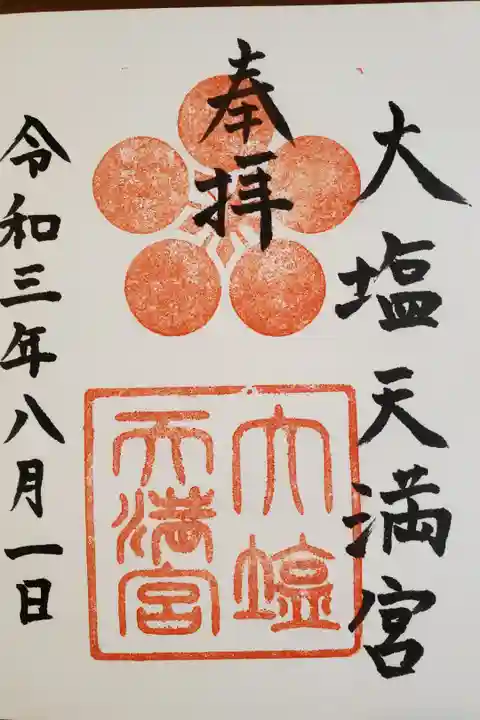 大塩天満宮
奉拝
令和三年八月一日
大塩
天満宮